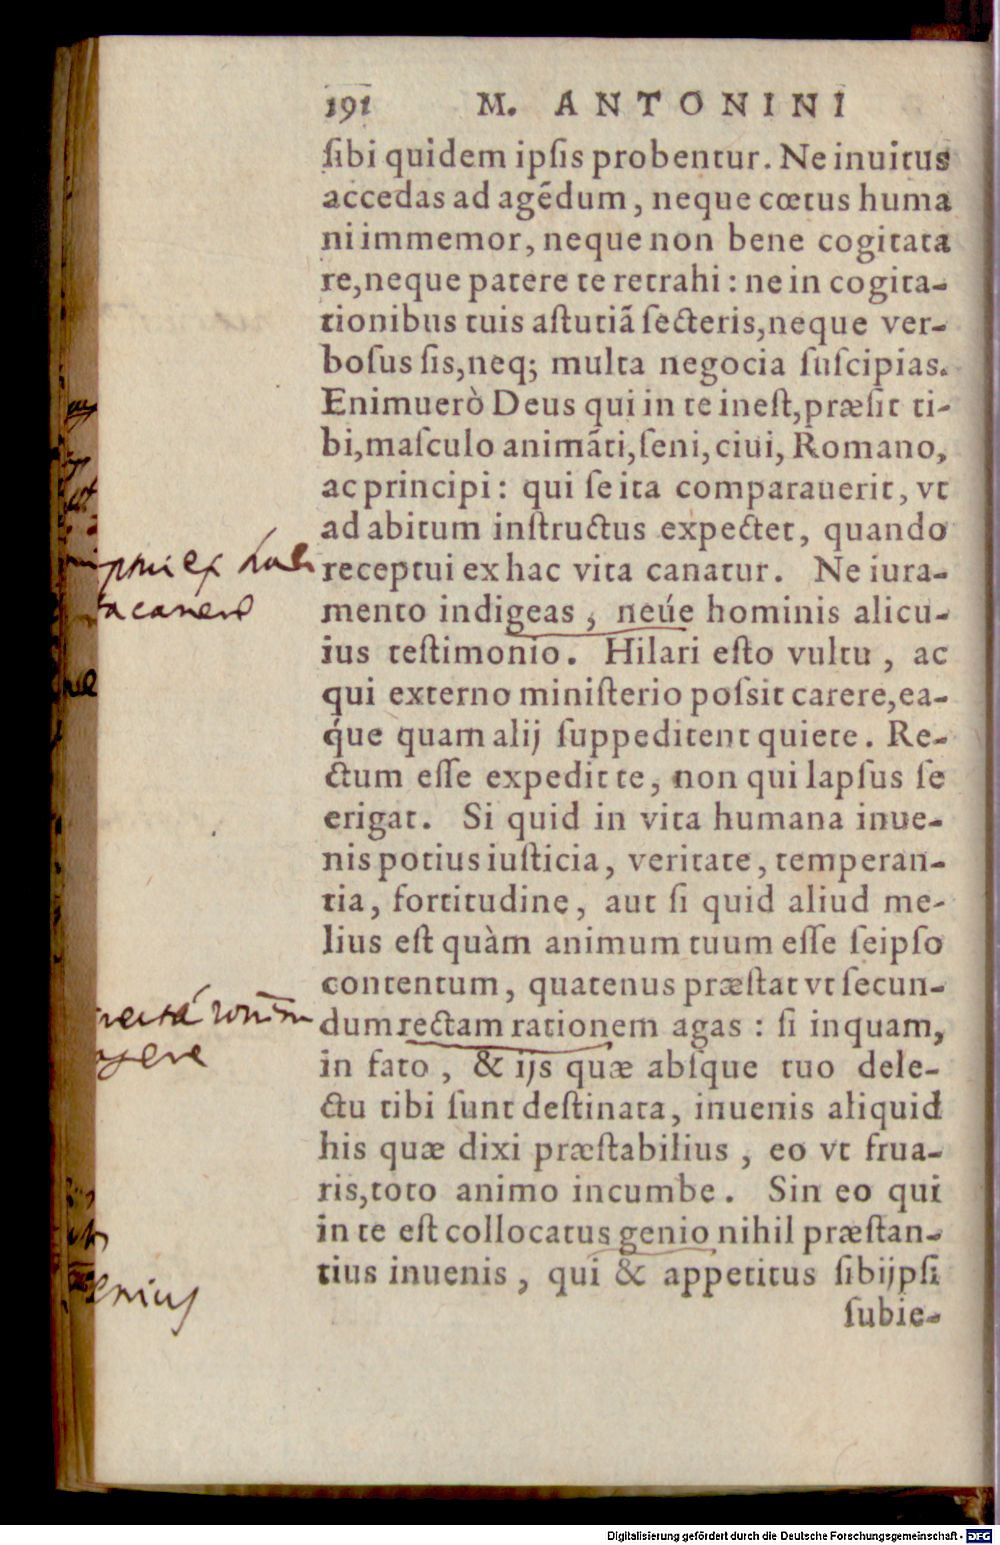 191 M. ANTONINI
ſibi quidem ipſis probentur. Ne inuitus
accedas ad agẽdum, neque cœtus huma
ni immemor, neque non bene cogitata
re, neque patere te retrahi: ne in cogita-
tionibus tuis aſtutiã ſecteris, neque ver-
boſus ſis, neq; multa negocia ſuſcipias.
Enimuerò Deus qui in te ineſt, præſit ti-
bi, maſculo animãti, ſeni, ciui, Romano,
ac principi: qui ſe ita comparauerit, vt
ad abitum inſtructus expectet, quando
receptui ex hac vita canatur. Ne iura-
mento indigeas, neúe hominis alicu-
ius teſtimonio. Hilari eſto vultu, ac
qui externo miniſterio poſsit carere, ea-
q́ue quam alij ſuppeditent quiete. Re-
ctum eſſe expedit te, non qui lapſus ſe
erigat. Si quid in vita humana inue-
nis potius iuſticia, veritate, temperan-
tia, fortitudine, aut ſi quid aliud me-
lius eſt quàm animum tuum eſſe ſeipſo
contentum, quatenus præſtat vt ſecun-
dum rectam rationem agas: ſi inquam,
in fato, & ijs quæ abſque tuo dele-
ctu tibi ſunt deſtinata, inuenis aliquid
his quæ dixi præſtabilius, eo vt frua-
ris, toto animo incumbe. Sin eo qui
in te eſt collocatus genio nihil præſtan-
tius inuenis, qui & appetitus ſibijpſi
ſubie-
acanere
agere
enius
Digitalisierung gefördert durch die Deutsche Forschungsgemeinschaft - DFG